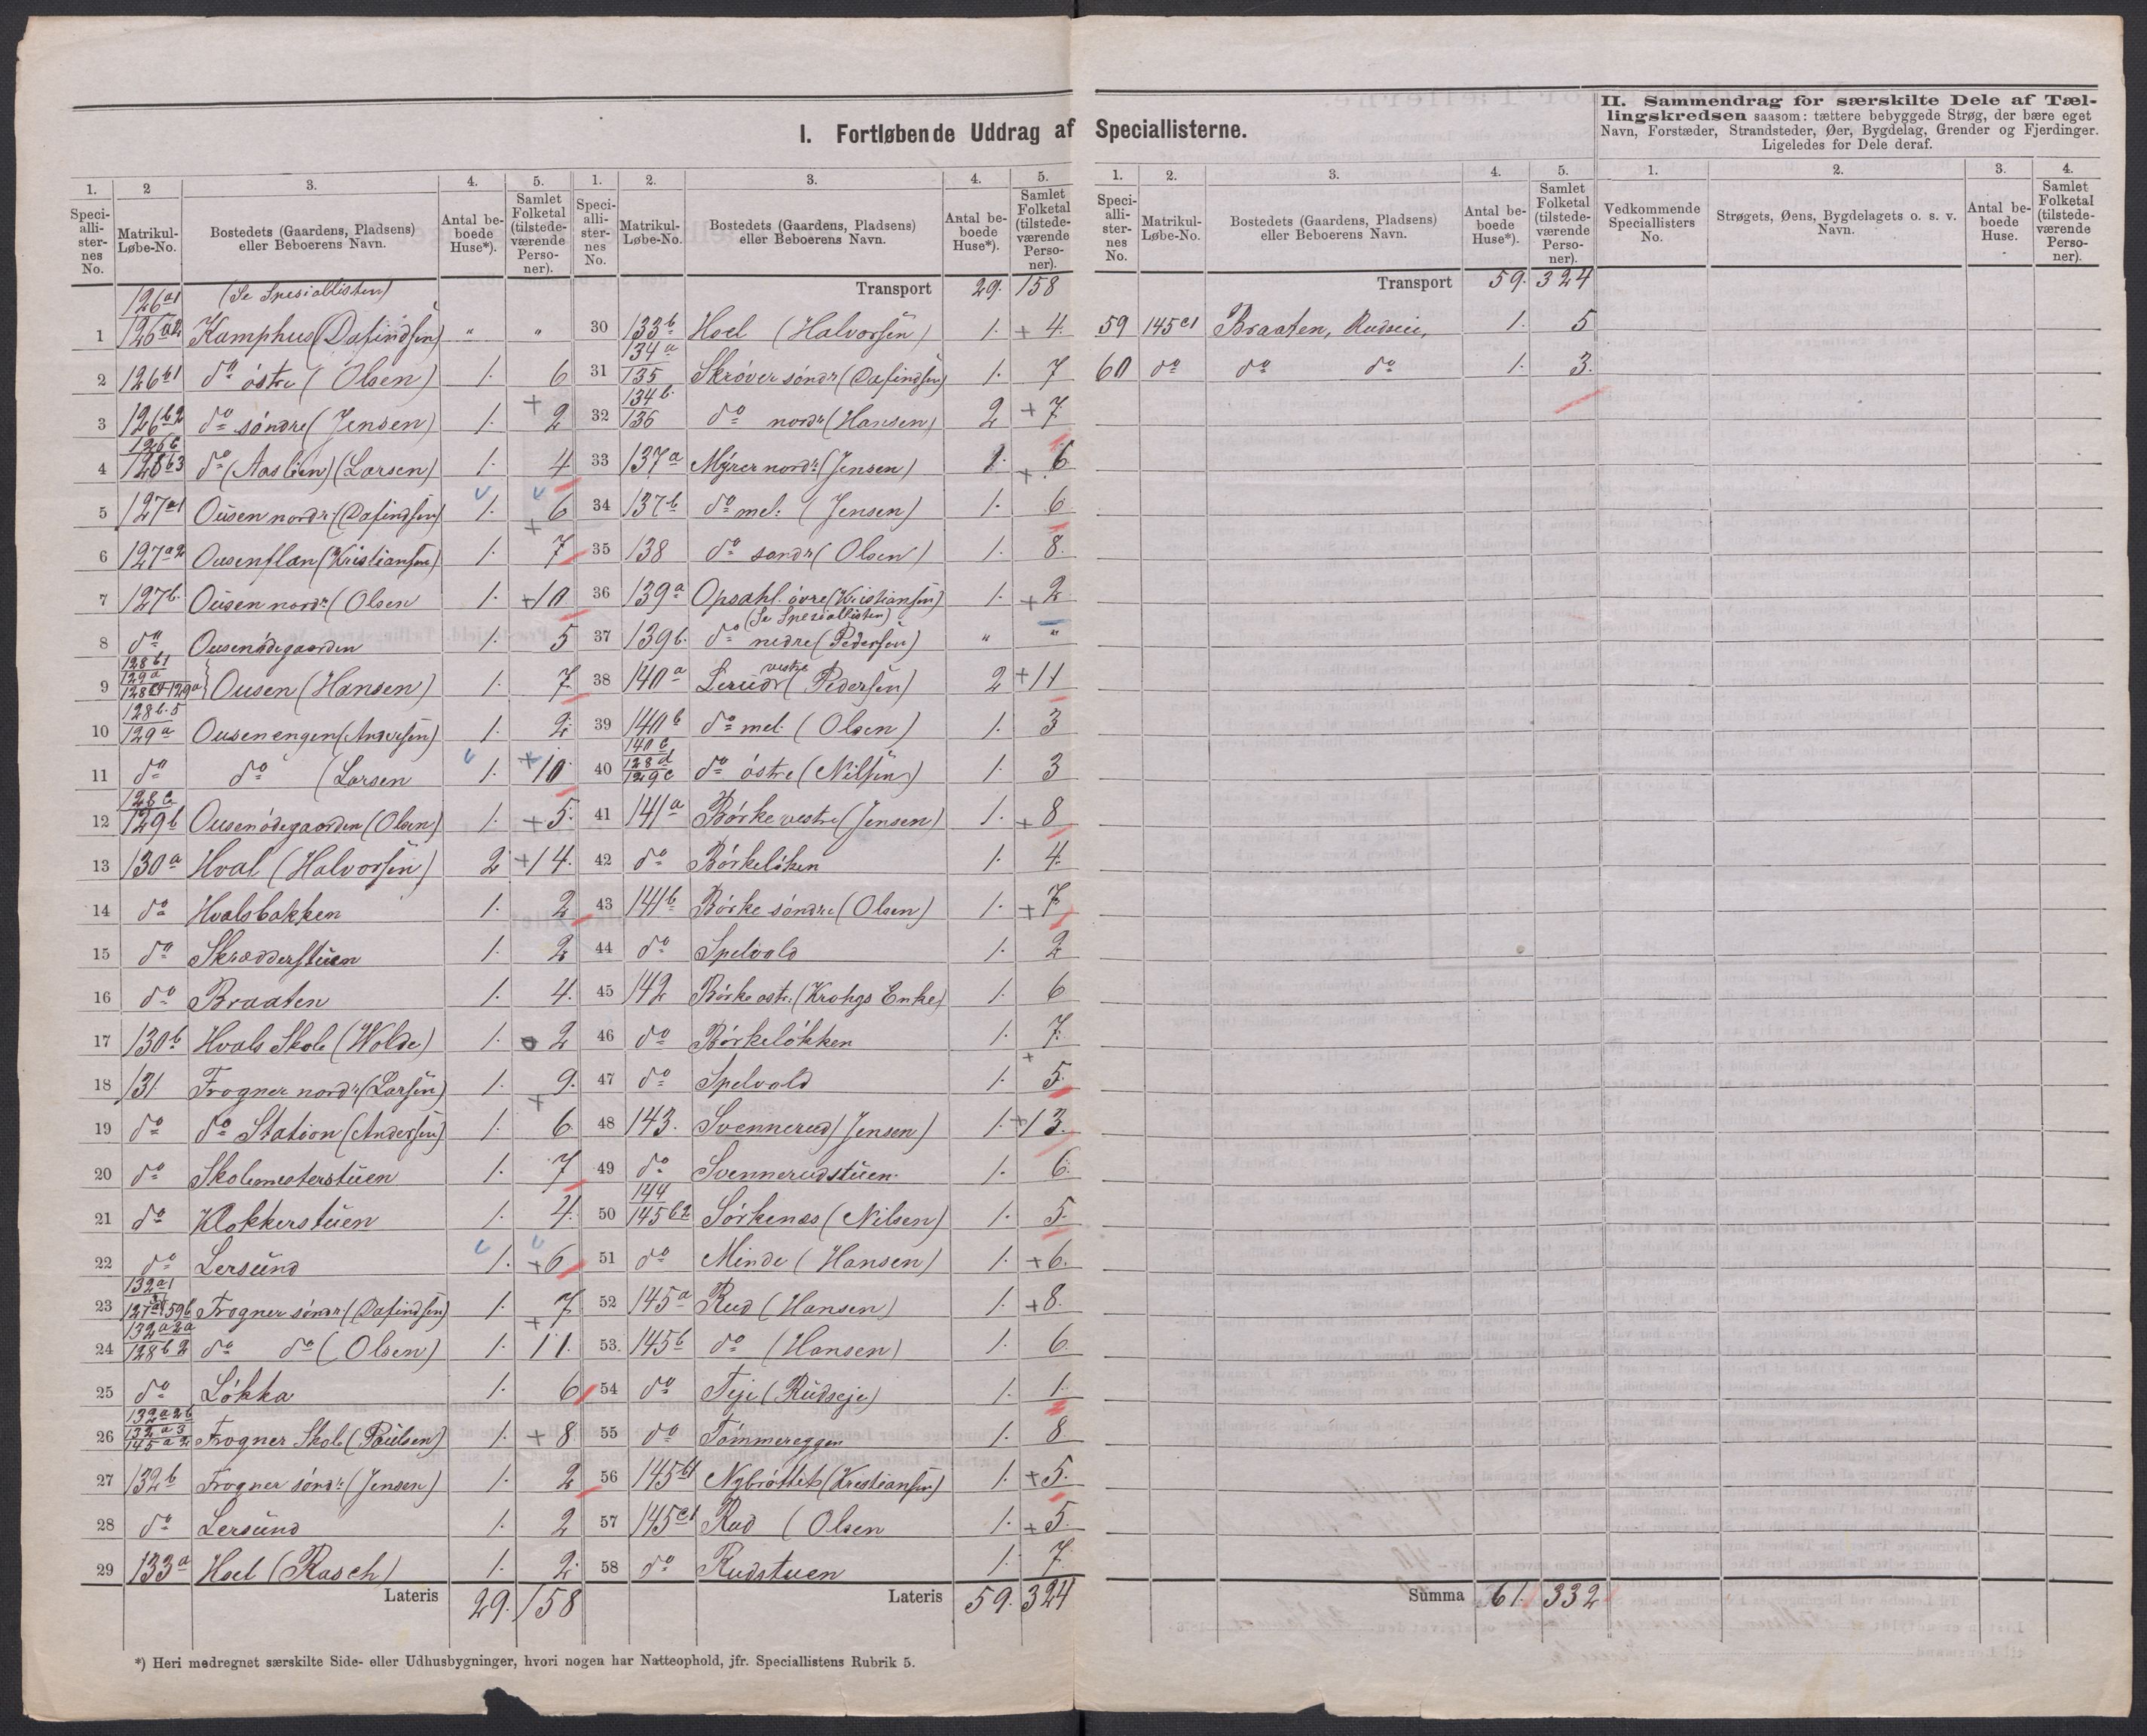 I. Fortløbende Uddrag af Speciallisterne.
II. Sammendrag for særskilte Dele af Tæl-
lingskredsen saasom: tættere bebyggede Strøg, der bære eget
Navn, Forstæder, Strandsteder, Øer, Bygdelag, Grender og Fjerdinger.
Ligeledes for Dele deraf.
1. 2 3. 4. 5.
Speci-alli-ster-nes No. Matrikul-Løbe-No. Bostedets (Gaardens, Pladsens) eller Beboerens Navn. Antal be-boede Huse*). Samlet Folketal (tilstede-værende Perso-ner).
126a1 (Se Spesiallisten)
1 126a2 Kamphus (Dafindsen) " "
2 126b1 do östre (Olsen) 1. 6
3 126b2 do söndre (Jensen) 1. + 2
4 126c 128b3 do (Aaslien) (Larsen) 1. 4
5 127a1 Ousen nordr: (Dafindsen) 1. 6
6 127a2 Ousenflan (Kristiansen) 1. + 7
7 127b. Ousen nordr: (Olsen 1. +10
8 do Ousenödegaarden 1. 5
9 128b1 129a 128b4 129a Ousen (Hansen) 1. 7
10 128b.5 129a Ousenengen (Andersen) 1. 2
11 do do (Larsen 1. +10
12 128c 129b Ousenödegaarden (Olsen) 1. +5.
13 130a Hval (Halvorsen) 2 +14.
14 do Hvalsbakken 1. 2
15 do Skrædderstuen 1. 2
16 do Braaten 1. 4.
17 130b Hvals Skole (Wolde) 1. 2
18 131 Frogner nordr: (Larsen) 1. 9.
19 do do Station (Andersen) 1. + 6
20 do Skolemesterstuen 1. 7
21 do Klokkerstuen 1. 4.
22 do Lersund 1. +6
23 132a1 127a3 159b Frogner söndr: (Dafindsen) 1. 7
24 132a2a 128b2 do do (Olsen) 1. + 11.
25 do Lökka 1. 6
26 132a2b 132a3 145a2 Frogner Skole (Poulsen) 1. + 8
27 132b Frogner söndr: (Jensen) 1. 2
28 do Lersund 1. 2
29 133a Hoel (Rasch) 1. 2.
Lateris 29. 158
1. 2. 3. 4. 5.
Speci-alli-ster-nes No. Matrikul-Løbe-No. Bostedets (Gaardens, Pladsens) eller Beboerens Navn. Antal be-boede Huse*). Samlet Folketal (tilstede-værende Perso-ner).
Transport 29. 158
30 133b Hoel (Halvorsen) 1. + 4.
31 134a 135 Skröver söndr: (Dafindsen) 1. 7
32 134b. 136 do nordr: (Hansen) 2 + 7.
33 137a Myrer nordr: (Jensen) 1. + 6
34 137b do mel: (Jensen) 1. 6
35 138 do söndr: (Olsen) 1. 8.
36 139a Opsahl övre (Kristiansen) 1. + 2
(Se Spesiallisten)
37 139b. do nedre (Pedersen) " "
38 140a Lerud vestre (Pedersen) 2 +11
39 140b do mel. (Olsen) 1. 3
40 140c 128d 129c do östre (Nilsen) 1. 3
41 141a Börke vestre (Jensen) 1. + 8
42 do Börkelöken 1. 4.
43 141b Börke söndre (Olsen) 1. +7
44 do Spelvold 1. 2
45 142 Börke östr: (Krohgs Enke) 1. 6
46 do Börkelökken 1. 7.
47 do Spelvold 1. + 5.
48 143. Svennerud (Jensen) 1. +13.
49 do Svennerudstuen. 1. 6.
50 144 145b2 Sörkenæs (Nilsen) 1. 5.
51 do Minde (Hansen) 1. +6.
52 145a Rud (Hansen) 1. +8.
53. 145b do (Hansen) 1. 6.
54 do Teje (Rudseje) 1. 1.
55 do Tömmereggen 1. 8
56 145b1 Nybrottet (Kristiansen) 1. +5.
57 145c1 Rud (Olsen 1. +5.
58 do Rudstuen 1. 7.
Lateris 59. 324
1. 2. 3. 4. 5.
Speci-alli-ster-nes No. Matrikul-Løbe-No. Bostedets (Gaardens, Pladsens) eller Beboerens Navn. Antal be-boede Huse*). Samlet Folketal (tilstede-værende Perso-ner).
Transport 59. 324
59 145c1 Braaten, Rudseie, 1. 5
60 do do do 1. 3.
Summa 61. 332
1. 2. 3. 4.
Vedkommende Speciallisters No. Strøgets, Øens, Bygdelagets o. s. v. Navn. Antal be-boede Huse. Samlet Folketal (tilstede-værende Perso-ner).
*) Heri medregnet særskilte Side- eller Udhusbygninger, hvori nogen har Natteophold, jfr. Speciallistens Rubrik 5.